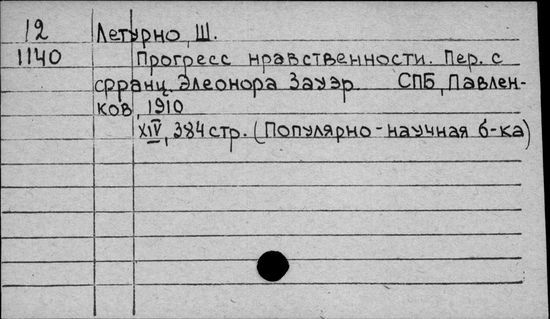 12 Летурно, Ш.
1140 Прогресс нравственности. Пер. с
франц. Элеонора Зауэр. СПБ, Павлен-
ков, 1910
XIV, 384 стр. (Популярно-научная б-ка)